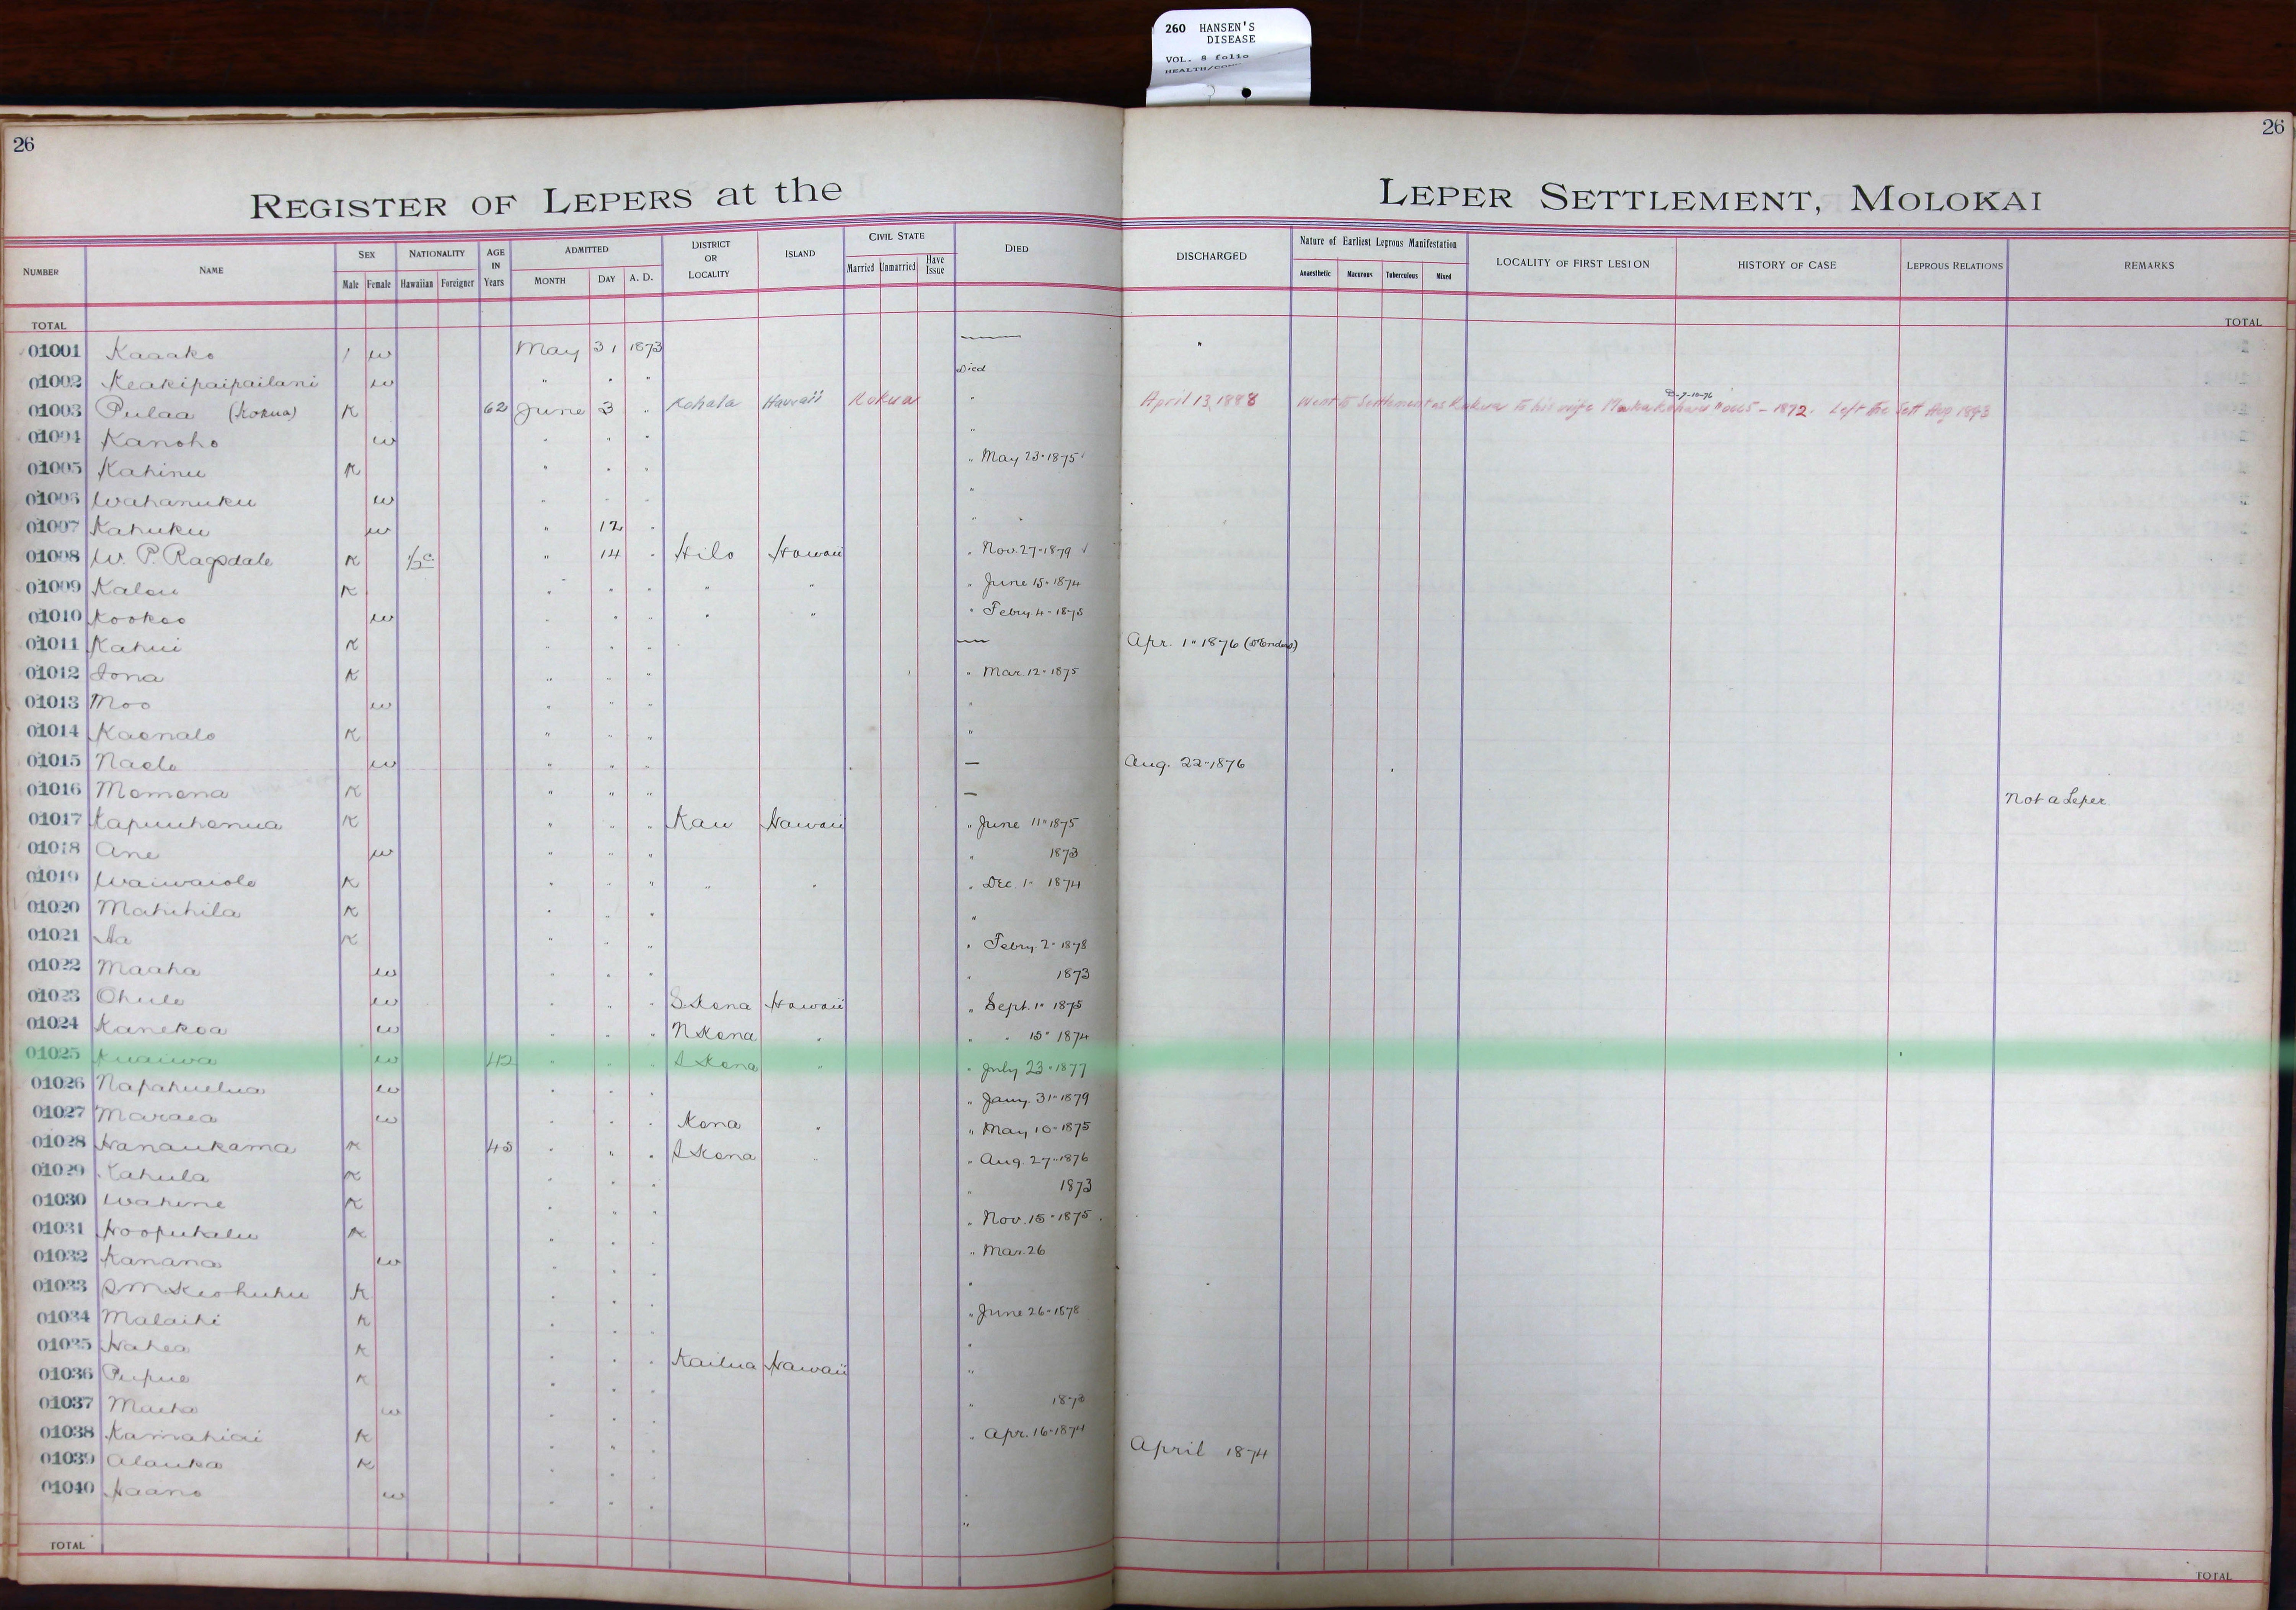 260 HANSEN'S
DISEASE
VOL. 8 folio
26
26
REGISTER OF LEPERS at the LEPER SETTLEMENT, MOLOKAI
NUMBER NAME SEX Male Female NATIONALITY Hawaiian Foreigner AGE IN Years ADMITTED MONTH DAY A. D. DISTRICT OR LOCALITY ISLAND CIVIL STATE Married Unmarried Have Issue DIED DISCHARGED Nature of Earliest Leprous Manifestation Anaesthetic Macurous Tuberculous Mixed LOCALITY OF FIRST LESION HISTORY OF CASE LEPROUS RELATIONS REMARKS
TOTAL TOTAL
01001 Kaaako / w May 31 1873
01002 Keakipaipailani w " " " Died
01003 Pulaa (Kokua) K 62 June 3 " Kohala Hawaii Kokua " April 13, 1888 Went to Settlement as Kokua to his wife 1872. Left the Sett Aug 1893
01004 Kanoho w " " " "
01005 Kahinu K " " " " May 23 " 1875
01006 Wahanuku w " " " "
01007 Kahuku w " 12 " "
01008 W. P. Ragsdale K 1/2 c " 14 " Hilo Hawaii " Nov. 27 " 1879
01009 Kalou K " " " " " " June 15 " 1874
01010 Kookoo w " " " " " " Febry. 4 - 1875
01011 Kahui K " " " — Apr. 1 " 1876
01012 Iona K " " " " Mar. 12 " 1875
01013 Moo w " " " "
01014 Kaonalo K " " " "
01015 Naelo w " " " — Aug. 22 - 1876
01016 Momona K " " " — Not a Leper
01017 Kapuuhonua K " " " Kau Hawaii " June 11 " 1875
01018 Ane w " " " " 1873
01019 Waiwaiole K " " " " " " Dec. 1 " 1874
01020 Mahihila K " " " "
01021 Aa K " " " " Febry. 2 " 1878
01022 Maaha w " " " " 1873
01023 Ohule w " " " S. Kona Hawaii " Sept. 1 " 1875
01024 Kanekoa w " " " N Kona " " " 15 " 1874
01025 Kuaiwa w 42 " " " S Kona " " July 23 " 1877
01026 Napahuelua w " " " " Jany. 31 " 1879
01027 Maraea w " " " Kona " " May 10 " 1875
01028 Hanaukama K 45 " " " S Kona " " Aug. 27 " 1876
01029 Kahula K " " " " 1873
01030 Wahine K " " " " Nov. 15 " 1875
01031 Hoopukalu K " " " " Mar. 26
01032 Kanana w " " " "
01033 S M Keohuhu K " " " " June 26 " 1878
01034 Malaihi K " " " "
01035 Hahea K " " " Kailua Hawaii "
01036 Pupue K " " " " 1873
01037 Maeha w " " " " Apr. 16 " 1874
01038 Kamahiai K " " " April 1874
01039 Alauka K " " " "
01040 Haano w " " " "
TOTAL TOTAL